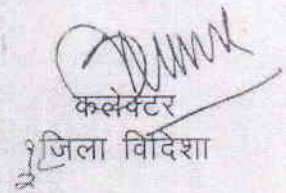 कलेक्टर
जिला विदिशा